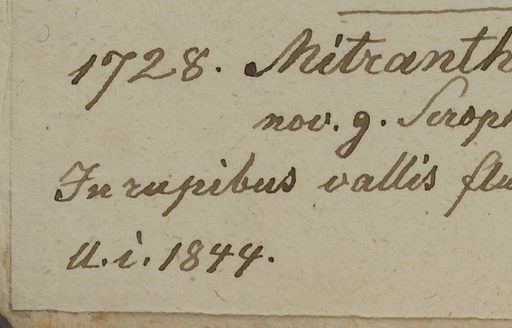 1728. Mitranth
nov. g. Scrop
In rupibus vallis flu
U. i. 1844.